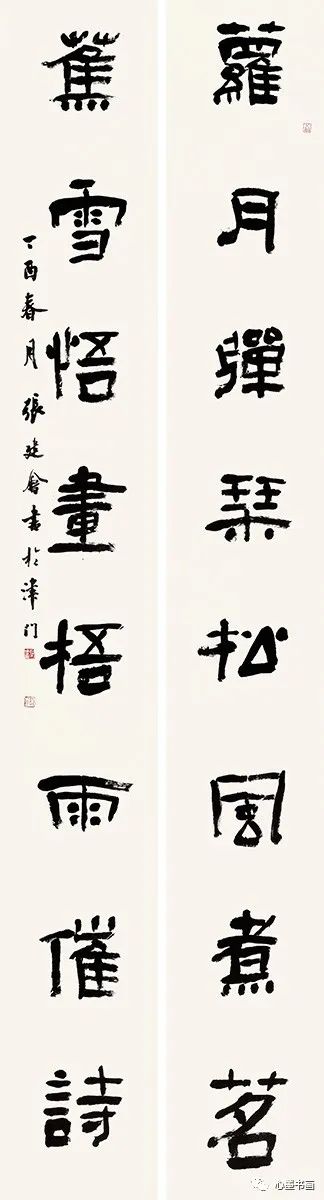 蘿月彈琹松風煮茗
蕉雪悟畫梧雨催詩
丁酉春月張建會書於津門
心墨书画